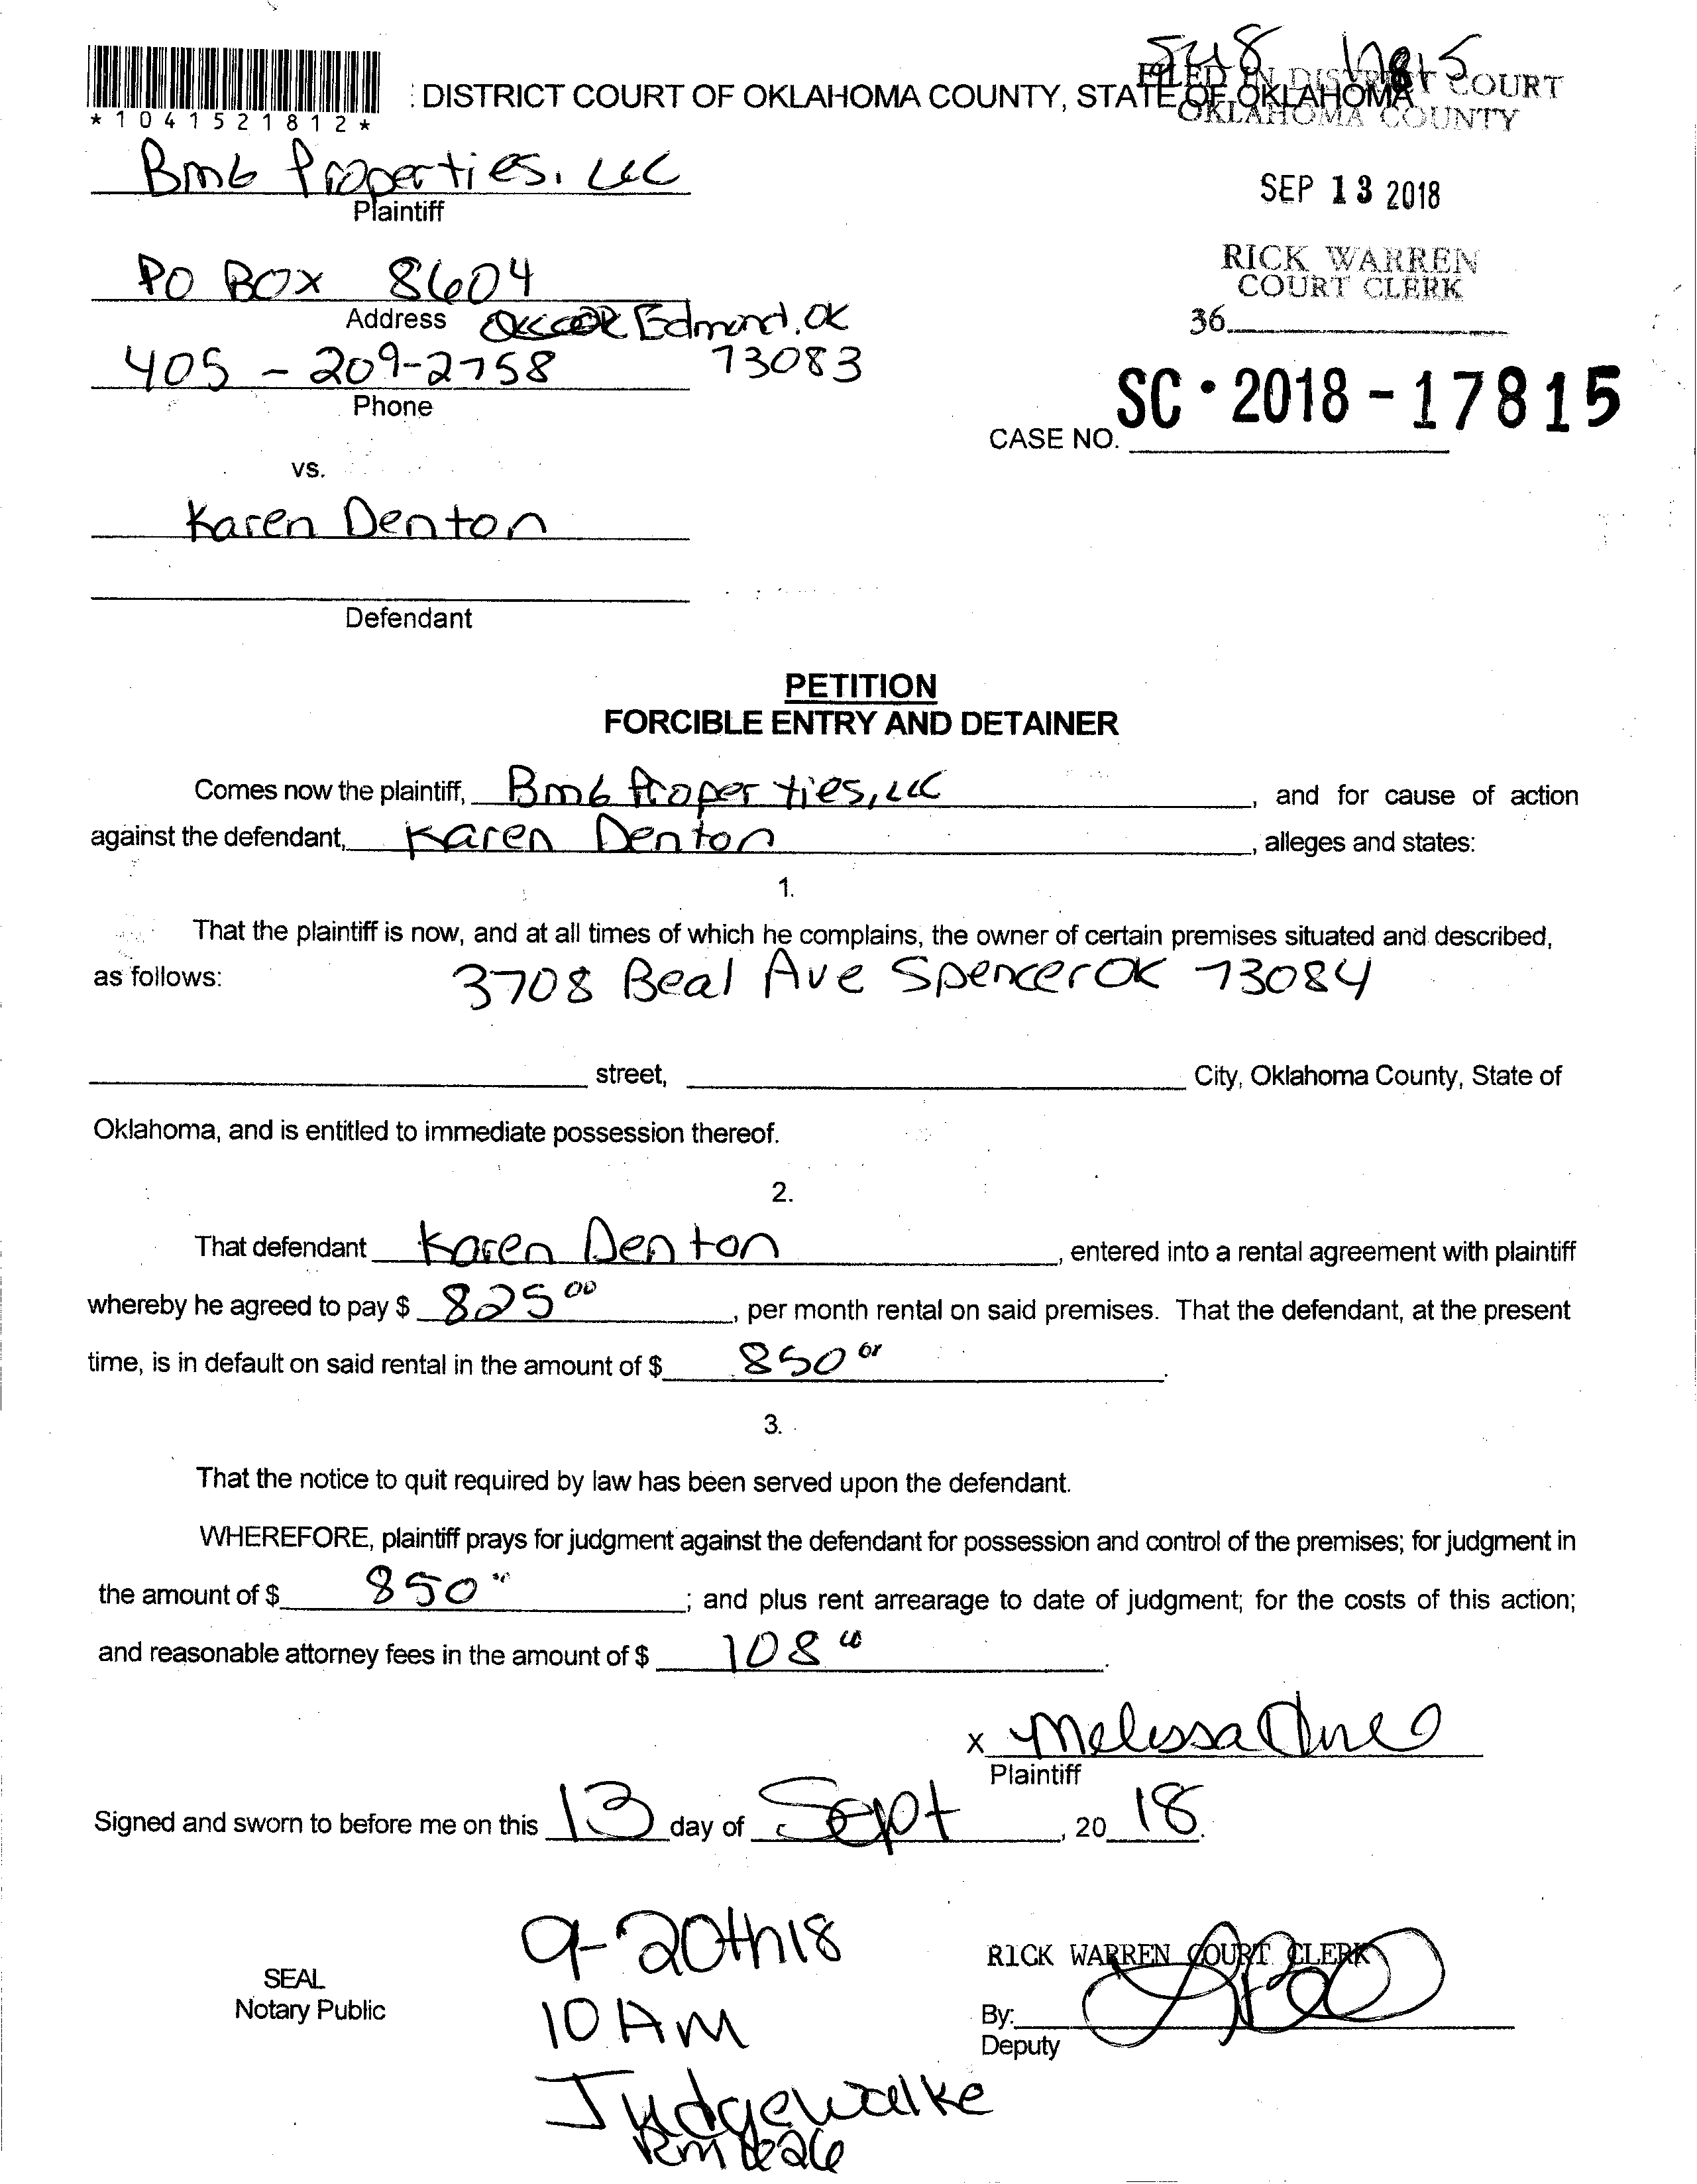 548 17815
*1041521812*
: DISTRICT COURT OF OKLAHOMA COUNTY, STATE OF OKLAHOMA
FILED IN DISTRICT COURT
OKLAHOMA COUNTY
Bmb Properties, LLC
Plaintiff
SEP 13 2018
PO BOX 8604
Address
Edmond, OK
73083
RICK WARREN
COURT CLERK
36
405-209-2758
Phone
SC-2018-17815
CASE NO.
vs.
Karen Denton
Defendant
PETITION
FORCIBLE ENTRY AND DETAINER
Comes now the plaintiff, Bmb Properties, LLC, and for cause of action
against the defendant, Karen Denton, alleges and states:
1.
That the plaintiff is now, and at all times of which he complains, the owner of certain premises situated and described,
as follows: 3708 Beal Ave Spencer OK 73084
street, City, Oklahoma County, State of
Oklahoma, and is entitled to immediate possession thereof.
2.
That defendant Karen Denton, entered into a rental agreement with plaintiff
whereby he agreed to pay $ 825 00, per month rental on said premises. That the defendant, at the present
time, is in default on said rental in the amount of $ 850.
3.
That the notice to quit required by law has been served upon the defendant.
WHEREFORE, plaintiff prays for judgment against the defendant for possession and control of the premises; for judgment in
the amount of $ 850; and plus rent arrearage to date of judgment; for the costs of this action;
and reasonable attorney fees in the amount of $ 108.
x Melissa
Plaintiff
Signed and sworn to before me on this 13 day of Sept, 20 18.
9-20th18
10 AM
Judge walke
SEAL
Notary Public
RICK WARREN COURT CLERK
By:
Deputy